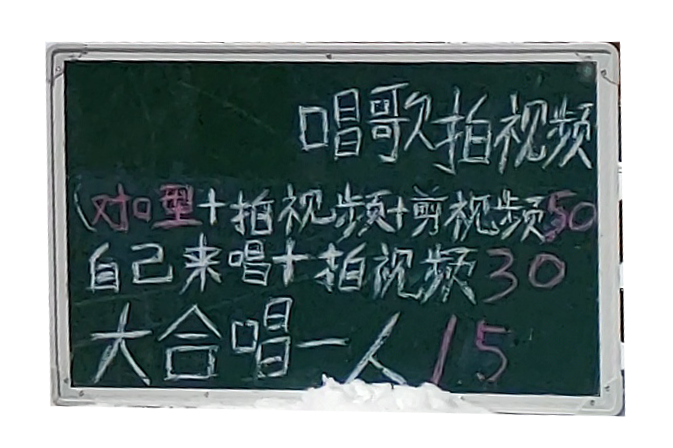 唱歌拍视频
对口型+拍视频+剪视频50
自己来唱+拍视频30
大合唱一人15